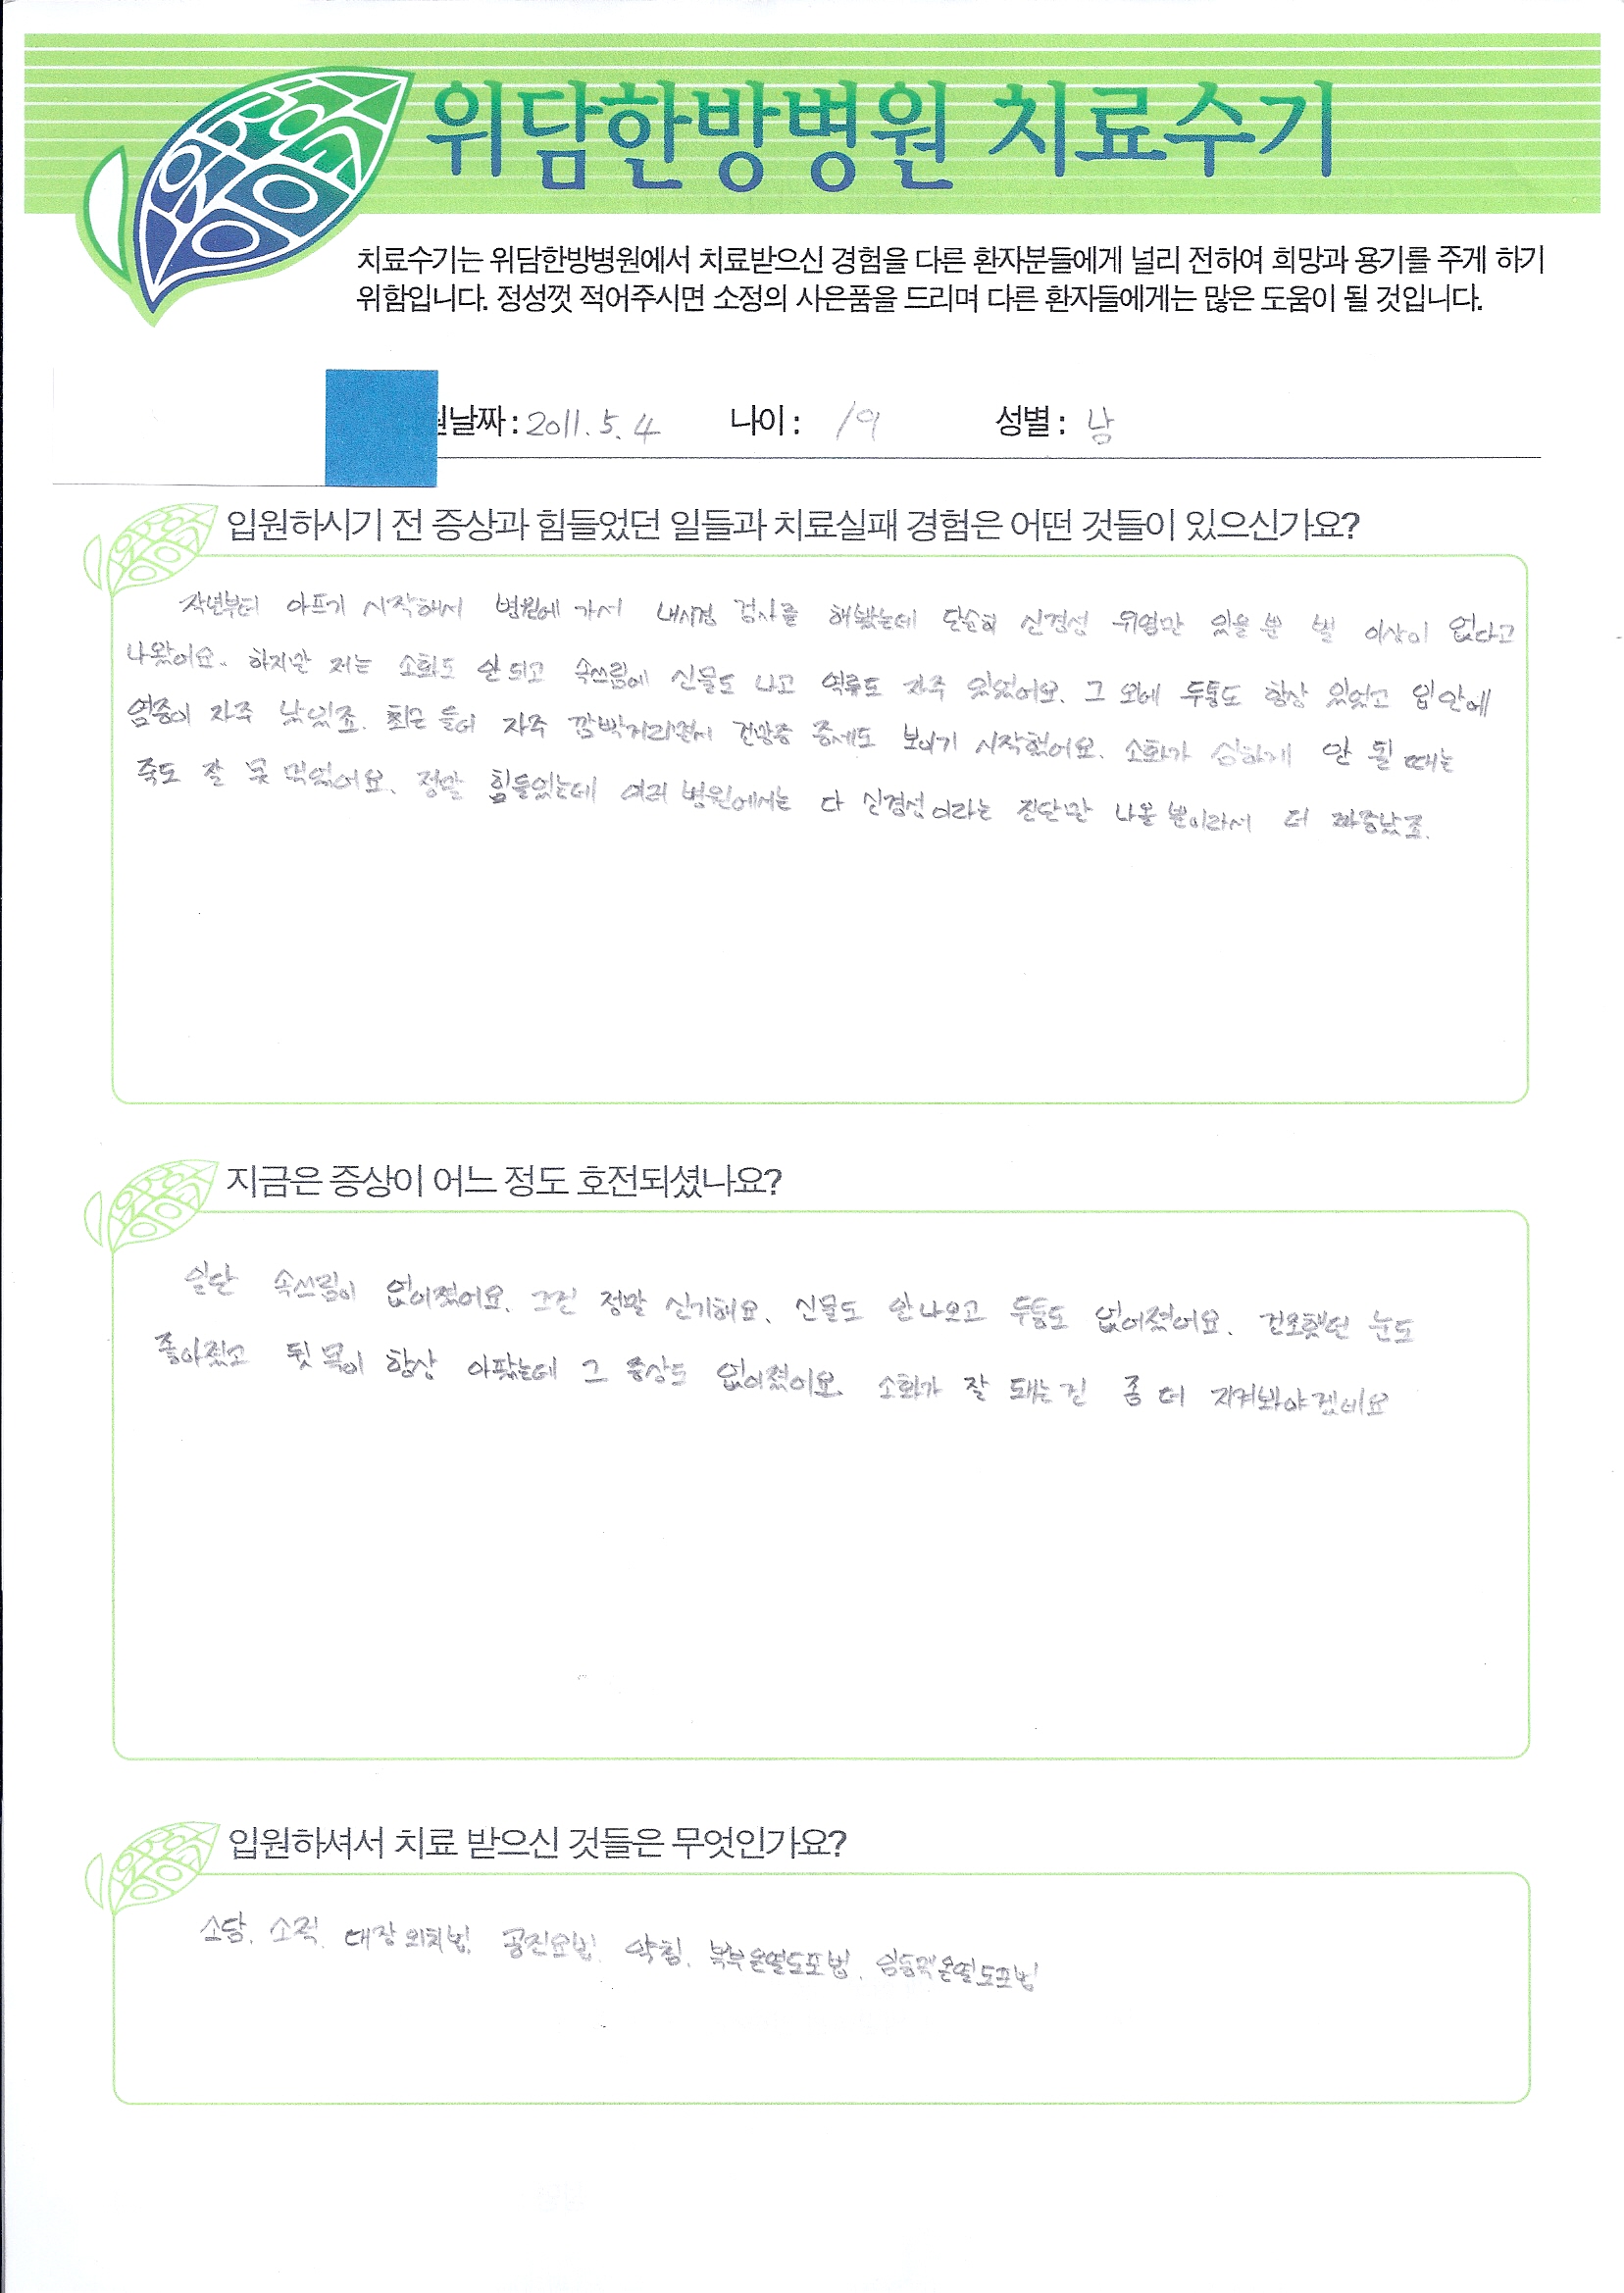 위담한방병원 치료수기
치료수기는 위담한방병원에서 치료받으신 경험을 다른 환자분들에게 널리 전하여 희망과 용기를 주게 하기
위함입니다. 정성껏 적어주시면 소정의 사은품을 드리며 다른 환자들에게는 많은 도움이 될 것입니다.
원날짜 : 2011. 5. 4 나이 : 19 성별 : 남
입원하시기 전 증상과 힘들었던 일들과 치료실패 경험은 어떤 것들이 있으신가요?
작년부터 아프기 시작해서 병원에 가서 내시경 검사를 해봤는데 단순히 신경성 위염만 있을 뿐 별 이상이 없다고
나왔어요. 하지만 저는 소화도 안 되고 속쓰림에 신물도 나고 역류도 자주 있었어요. 그 외에 두통도 항상 있었고 입안에
염증이 자주 났었죠. 최근 들어 자주 깜빡거리면서 건망증 증세도 보이기 시작했어요. 소화가 심하게 안 될 때는
죽도 잘 못 먹었어요. 정말 힘들었는데 여러 병원에서는 다 신경성이라는 진단만 나올 뿐이라서 더 짜증났죠.
지금은 증상이 어느 정도 호전되셨나요?
일단 속쓰림이 없어졌어요. 그건 정말 신기해요. 신물도 안나오고 두통도 없어졌어요. 건조했던 눈도
좋아졌고 뒷 목이 항상 아팠는데 그 증상도 없어졌어요. 소화가 잘 돼는 건 좀 더 지켜봐야겠네요
입원하셔서 치료 받으신 것들은 무엇인가요?
소담. 소적. 대장외치법. 공진요법. 약침. 복부온열도포법.